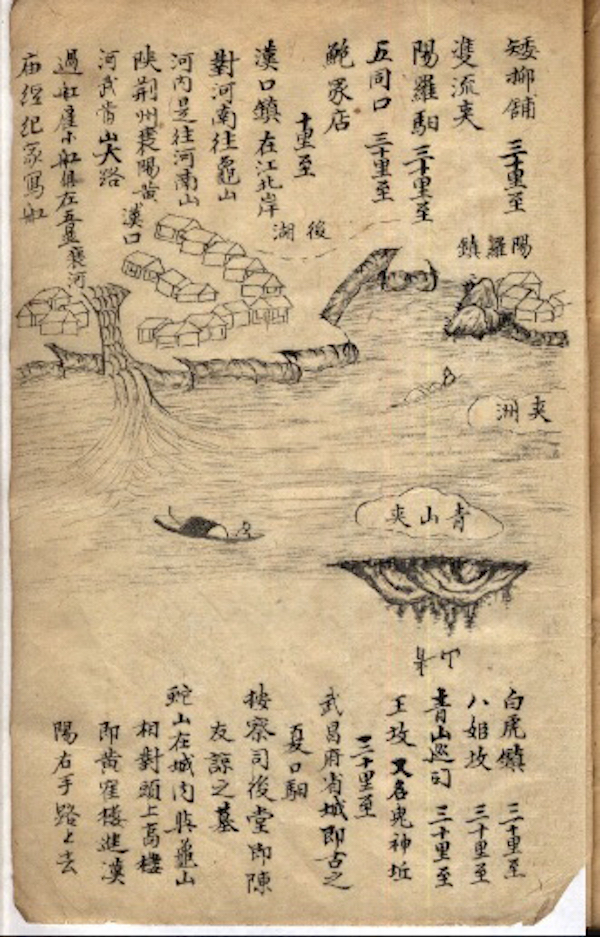 矮柳舖 三十里至
雙流夾
陽羅馹 三十里至
五同口 三十里至
鮑家店
十里至
漢口鎮在江北岸
對河南往龜山
河內是往河南山
陝荆州襄陽黃
河武當山大路
過缸產小舡俱在五显
庙經紀家寫舡
襄河
漢口
後湖
陽羅鎮
夾洲
青山夾
白虎鎮 三十里至
八姐坟 三十里至
青山巡司 三十里至
王坟 又名鬼神坵
三十里至
武昌府省城即古之
夏口馹
按察司後堂即陳
友諒之墓
蛇山在城内與龜山
相對頭上高樓
即黃崔樓進漢
陽右手路上去